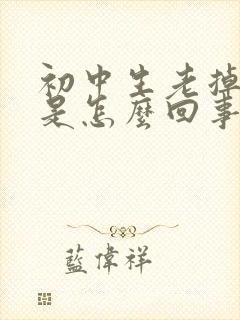 初中生老掉
是怎麼回事
藍偉祥